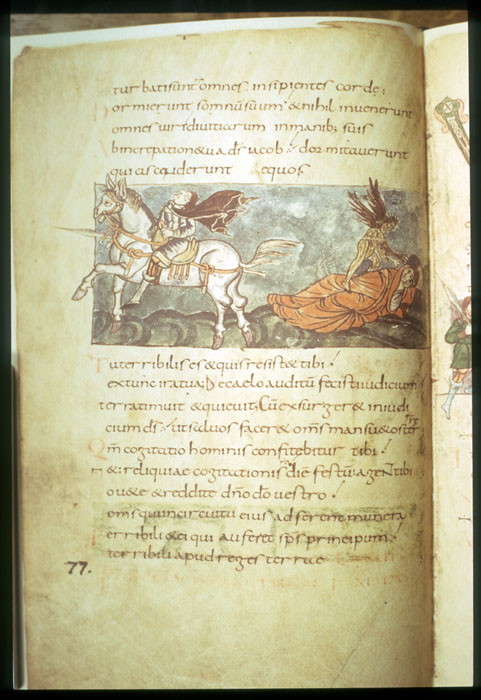 turbatisunt omnes insipientes corde;
Dormierunt somnum suum & nihil invenerunt
omnes viri divitiarum inmanib; suis
Abincrepatione tua ds iacob; dormitaverunt
qui ascenderunt aequos
Tuterribilis es & quis resist& tibi;
extunc iratua; Decaelo auditum fecisti iudicium
terratimuit & quievit; Cum exsurger& iniudi
cium ds; ut salvos facer& oms mansu&oster
Qm cogitatio hominis confitebitur tibi;
&reliquiae cogitationis diē festū agent tibi
vov&e & reddite dno do vestro;
oms quiincircuitu eius adferent munera
Terribili & ei qui aufer& sps principum
terribili apud reges terrae
77.